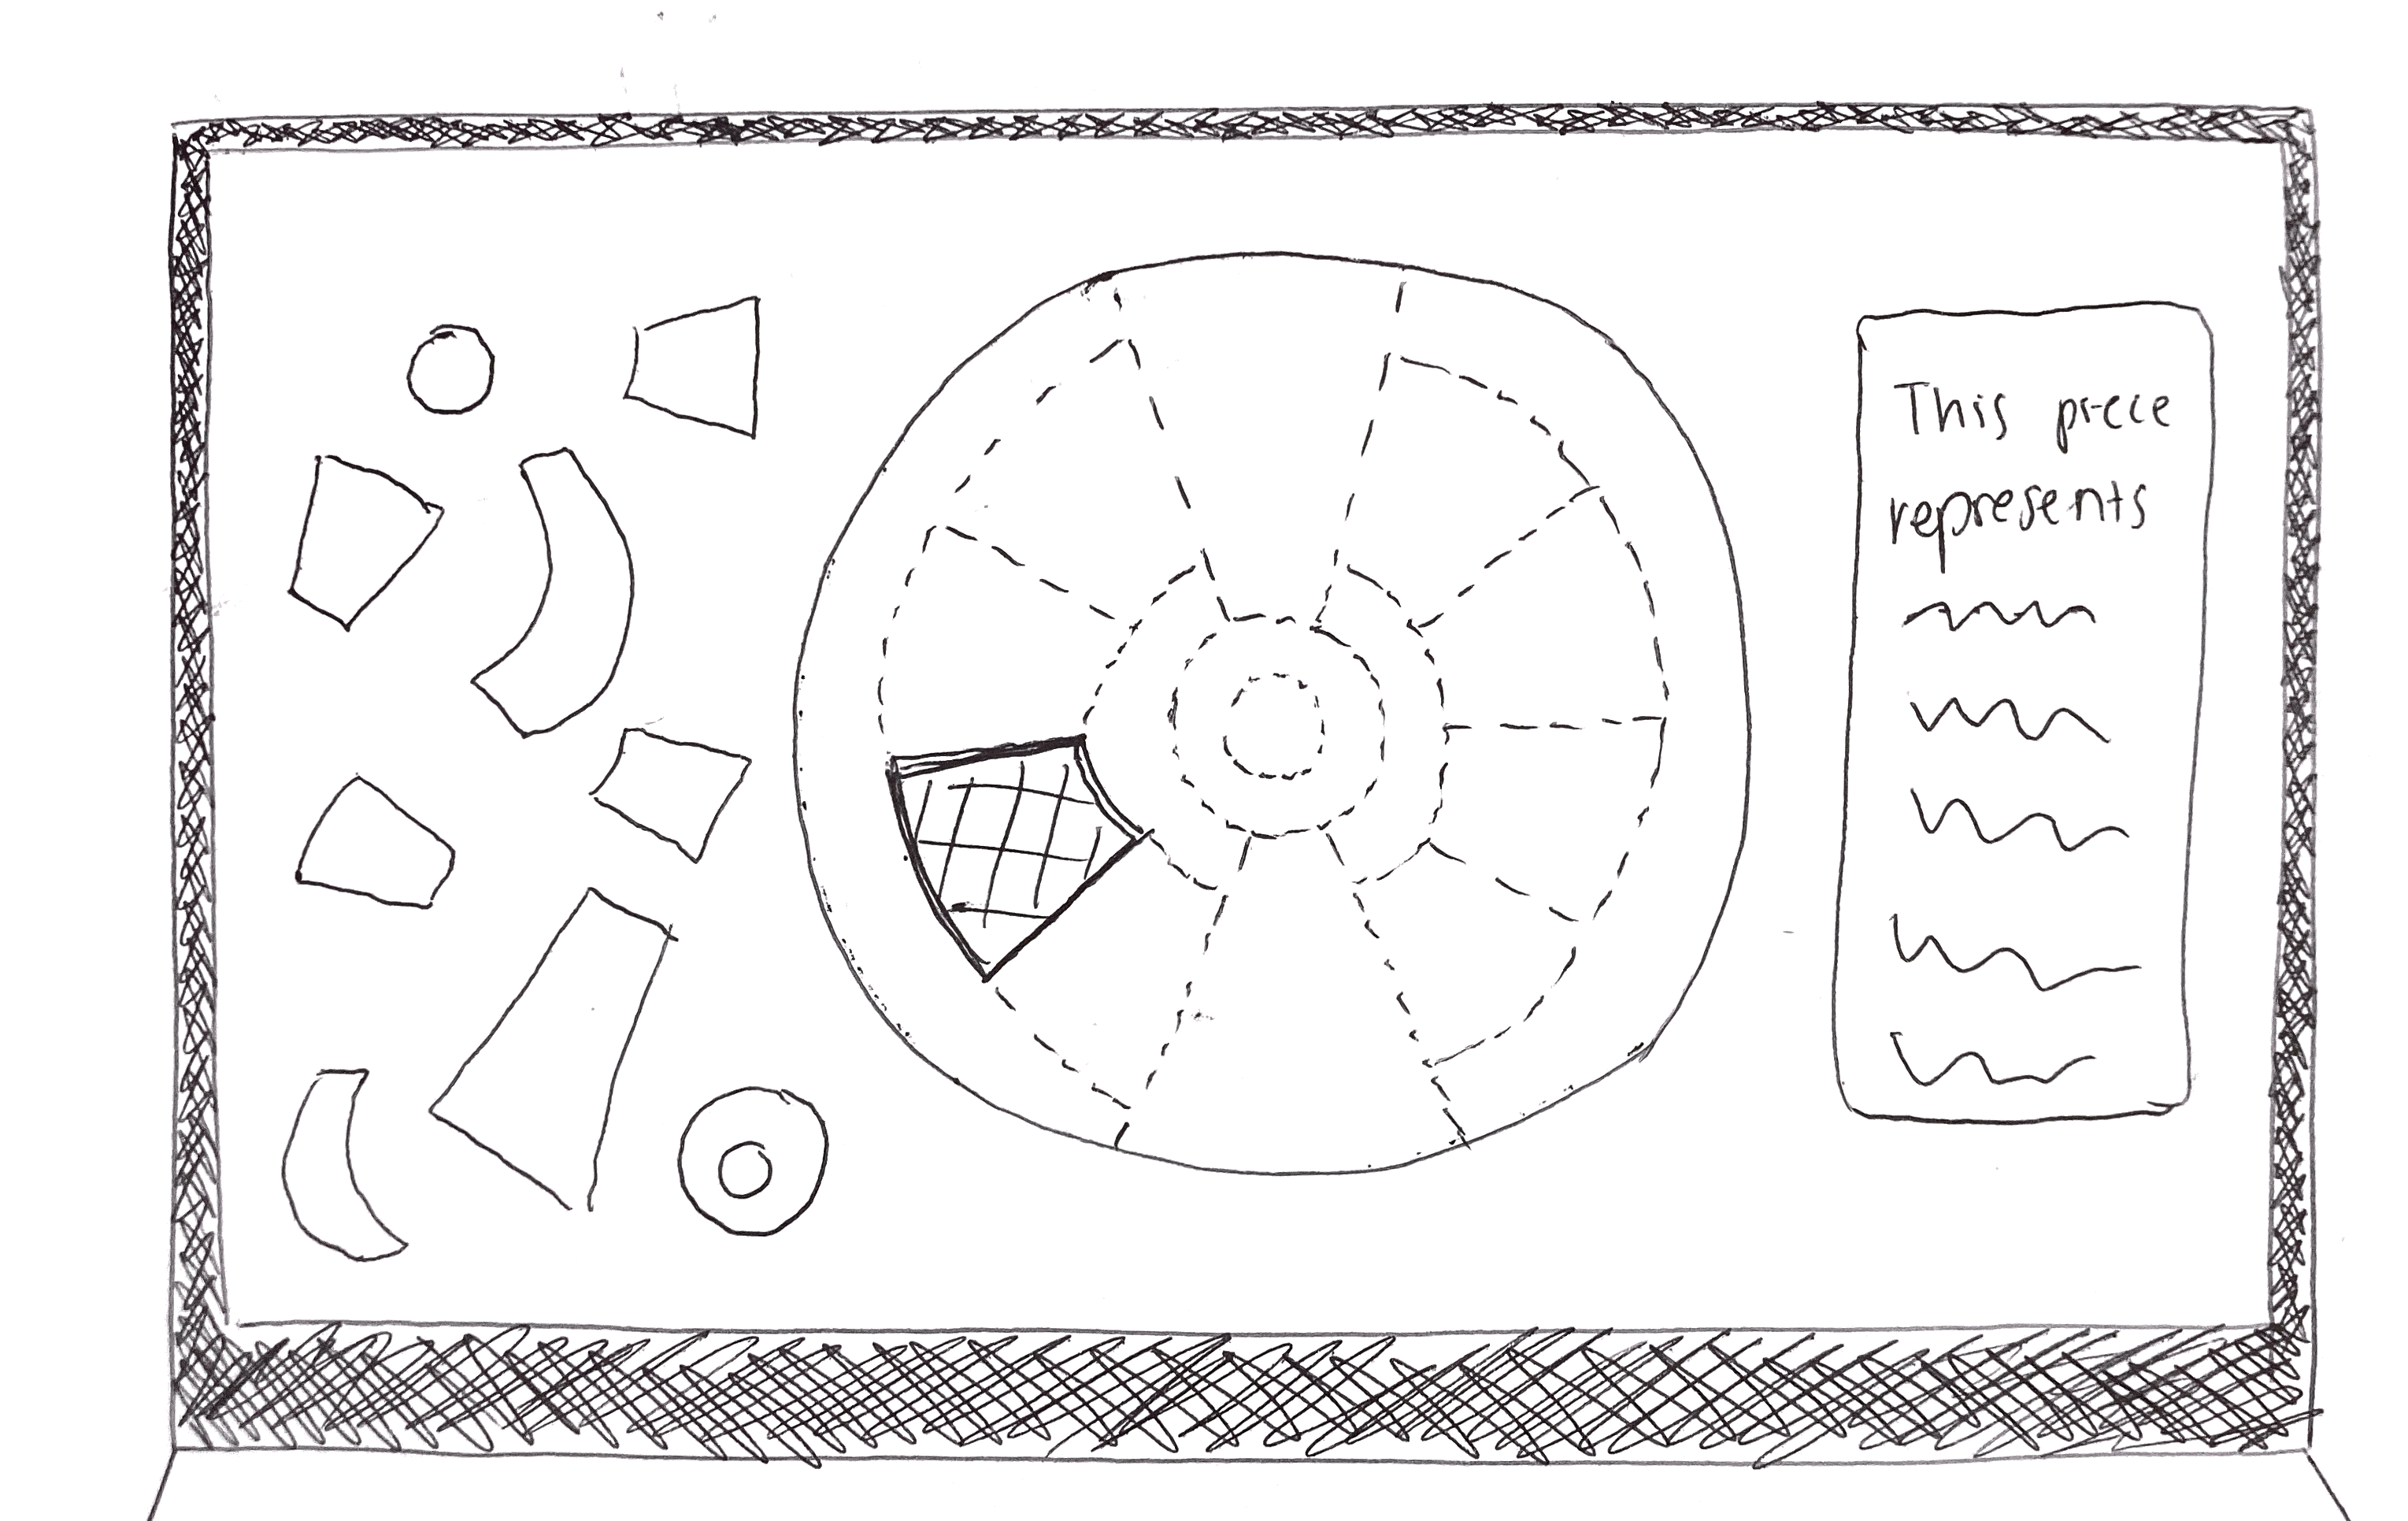 This piece
represents